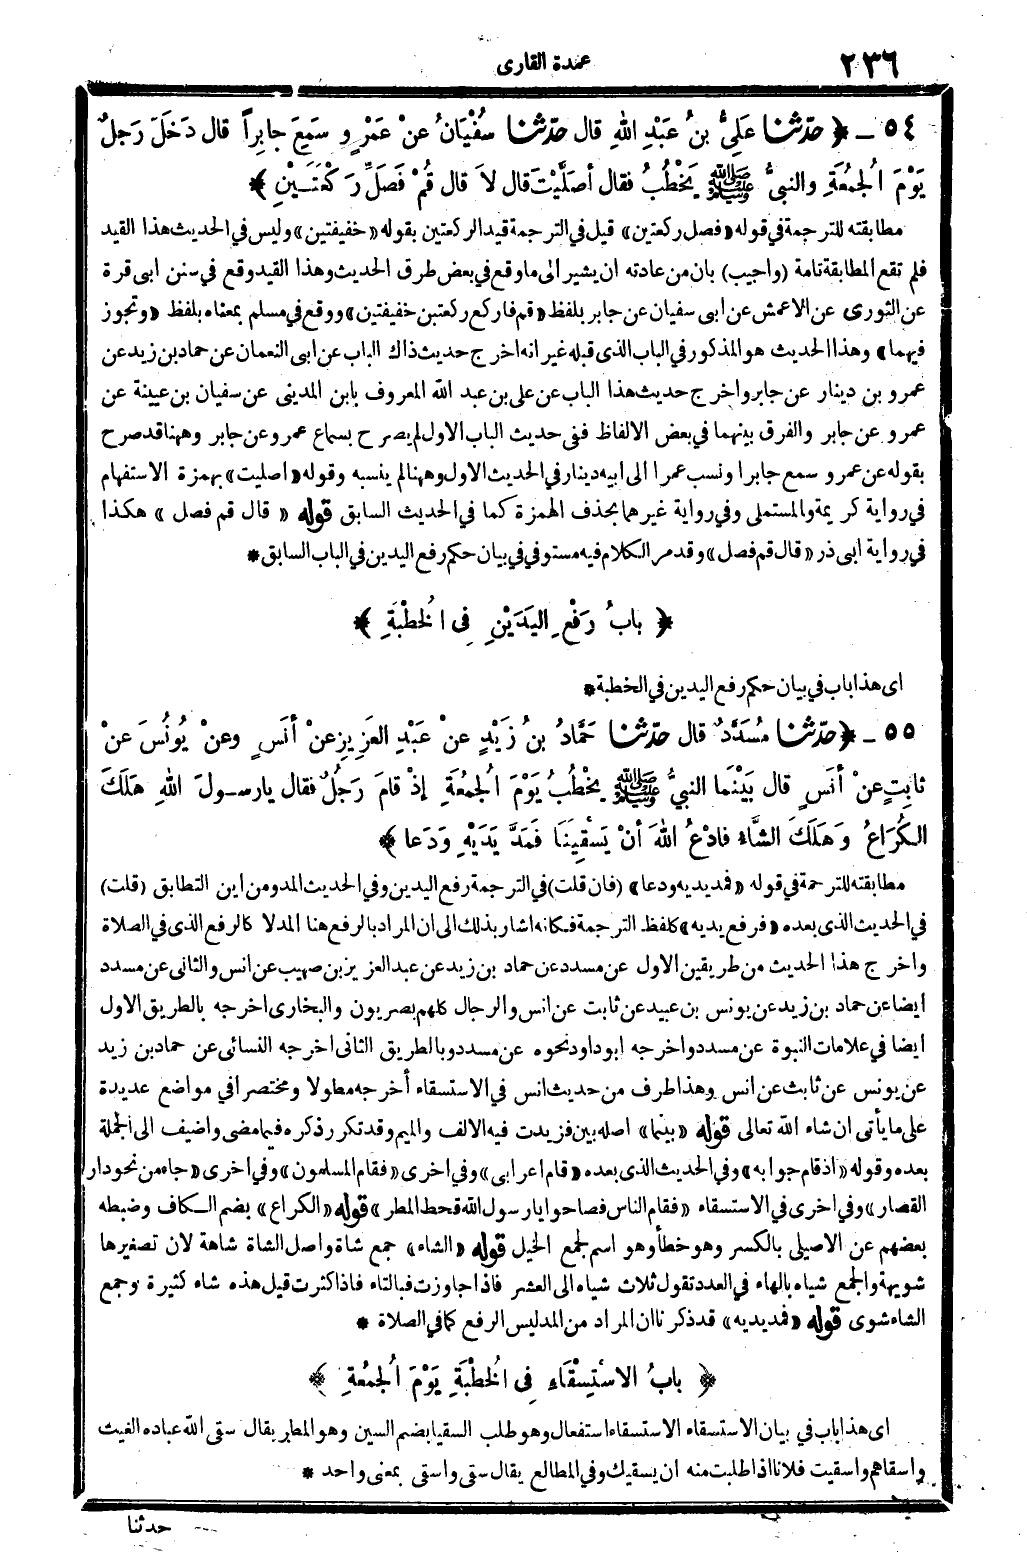 ٢٣٦
عمدة القارى
٥٤ ـ ﴿ حدّثنا عَلِيُّ بنُ عَبْدِ اللهِ قال حدّثنا سُفْيَانُ عنْ عَمْرٍو سَمِعَ جابِراً قال دَخَلَ رَجلٌ
يَوْمَ الجُمُعَةِ والنبيُّ ﷺ يَخْطُبُ فقال أصَلَّيْتَ قال لاَ قال قُمْ فَصَلِّ رَكْعَتَيْنِ ﴾
مطابقته للترجمة في قوله « فصل ركعتين » قيل في الترجمة قيد الركعتين بقوله « خفيفتين » وليس في الحديث هذا القيد
فلم تقع المطابقة تامة (واجيب) بان من عادته ان يشير الى ما وقع في بعض طرق الحديث وهذا القيد وقع في سنن ابى قرة
عن الثورى عن الاعمش عن ابى سفيان عن جابر بلفظ « قم فاركع ركعتين خفيفتين » ووقع في مسلم بمعناه بلفظ « وتجوز
فيهما » وهذا الحديث هو المذكور في الباب الذى قبله غير انه اخرج حديث ذاك الباب عن ابى النعمان عن حماد بن زيد عن
عمرو بن دينار عن جابر واخرج حديث هذا الباب عن على بن عبد الله المعروف بابن المدينى عن سفيان بن عيينة عن
عمرو عن جابر والفرق بينهما في بعض الالفاظ ففى حديث الباب الاول لم يصرح بسماع عمرو عن جابر وههنا قد صرح
بقوله عن عمرو سمع جابرا ونسب عمرا الى ابيه دينار في الحديث الاول وهنا لم ينسبه وقوله « اصليت » بهمزة الاستفهام
في رواية كريمة والمستملى وفي رواية غيرهما بحذف الهمزة كما في الحديث السابق قوله « قال قم فصل » هكذا
في رواية ابى ذر « قال قم فصل » وقد مر الكلام فيه مستوفي في بيان حكم رفع اليدين في الباب السابق *
﴿ بابُ رَفْعِ اليَدَيْنِ فِي الخُطْبَةِ ﴾
اى هذا باب في بيان حكم رفع اليدين في الخطبة *
٥٥ ـ ﴿ حدّثنا مُسَدَّدٌ قال حدّثنا حَمَّادُ بنُ زَيْدٍ عنْ عَبْدِ العَزِيزِ عنْ أنَسٍ وعنْ يُونُسَ عنْ
ثابِتٍ عنْ أنَسٍ قال بَيْنَما النبيُّ ﷺ يخْطُبُ يَوْمَ الجُمُعَةِ إذْ قامَ رَجُلٌ فقال يارسولَ اللهِ هَلَكَ
الكُرَاعُ وَهَلَكَ الشَّاءُ فادْعُ اللهَ أنْ يَسْقِيَنَا فَمَدَّ يَدَيْهِ وَدَعا ﴾
مطابقته للترجمة في قوله « فمد يديه ودعا » (فان قلت) في الترجمة رفع اليدين وفي الحديث المد ومن اين التطابق (قلت)
في الحديث الذى بعده « فرفع يديه » كلفظ الترجمة فكانه اشار بذلك الى ان المراد بالرفع هنا المد لا كالرفع الذى في الصلاة
واخرج هذا الحديث من طريقين الاول عن مسدد عن حماد بن زيد عن عبد العزيز بن صهيب عن انس والثانى عن مسدد
ايضا عن حماد بن زيد عن يونس بن عبيد عن ثابت عن انس والرجال كلهم بصريون والبخارى اخرجه بالطريق الاول
ايضا في علامات النبوة عن مسدد واخرجه ابو داود نحوه عن مسدد وبالطريق الثانى اخرجه النسائى عن حماد بن زيد
عن يونس عن ثابث عن انس وهذا طرف من حديث انس في الاستسقاء أخرجه مطولا ومختصرا في مواضع عديدة
على ما يأتى ان شاء الله تعالى قوله « بينما » اصله بين فزيدت فيه الالف والميم وقد تكرر ذكره فيما مضى واضيف الى الجملة
بعده وقوله « اذ قام جوابه » وفي الحديث الذى بعده « قام اعرابى » وفي اخرى « فقام المسلمون » وفي اخرى « جاء من نحو دار
القضار » وفي اخرى في الاستسقاء « فقام الناس فصاحوا يارسول الله قحط المطر » قوله « الكراع » بضم الكاف وضبطه
بعضهم عن الاصيلى بالكسر وهو خطأ وهو اسم لجمع الخيل قوله « الشاء » جمع شاة واصل الشاة شاهة لان تصغيرها
شويهة والجمع شياه بالهاء في العدد تقول ثلاث شياه الى العشر فاذا جاوزت فبالتاء فاذا كثرت قيل هذه شاء كثيرة وجمع
الشاء شوى قوله « فمد يديه » قد ذكرنا ان المراد من المد ليس الرفع كما في الصلاة *
﴿ بابُ الاسْتِسْقَاءِ فِي الخُطْبَةِ يَوْمَ الجُمُعَةِ ﴾
اى هذا باب في بيان الاستسقاء الاستسقاء استفعال وهو طلب السقيا بضم السين وهو المطر يقال سقى الله عباده الغيث
واسقاهم واسقيت فلانا اذا طلبت منه ان يسقيك وفي المطالع يقال سقى واسقى بمعنى واحد *
حدثنا